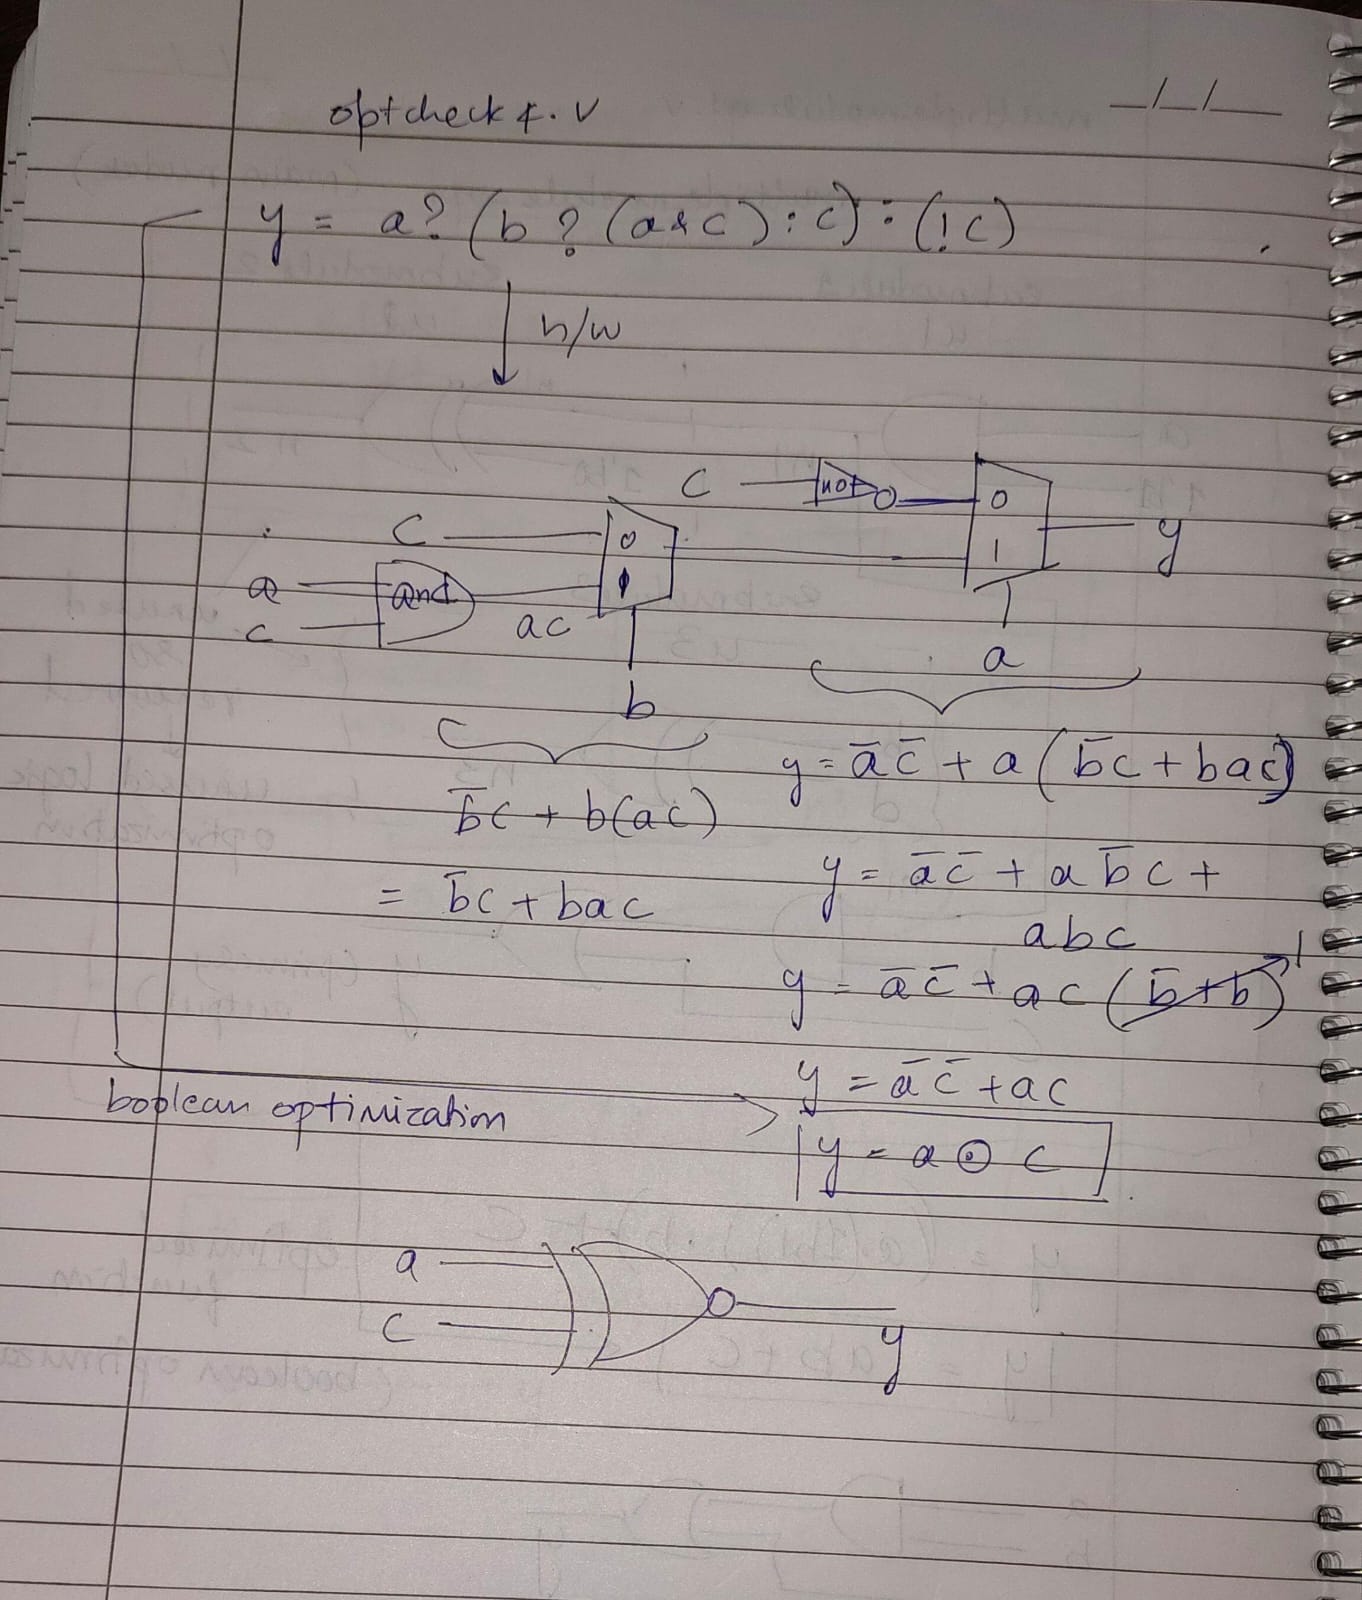 optcheck4.v
_/_/__
y = a? (b ? (a&c) : c) : (!c)
h/w
c not 0
c 0 1 y
a and 1
c ac a
b
y = a̅ c̅ + a (b̅c + bac)
b̅c + b(ac)
y = a̅ c̅ + a b̅ c +
= b̅c + bac
abc
y = a̅ c̅ + ac (b̅+b) 1
y = a̅ c̅ + ac
boolean optimization
y = a ⊙ c
a
c
y